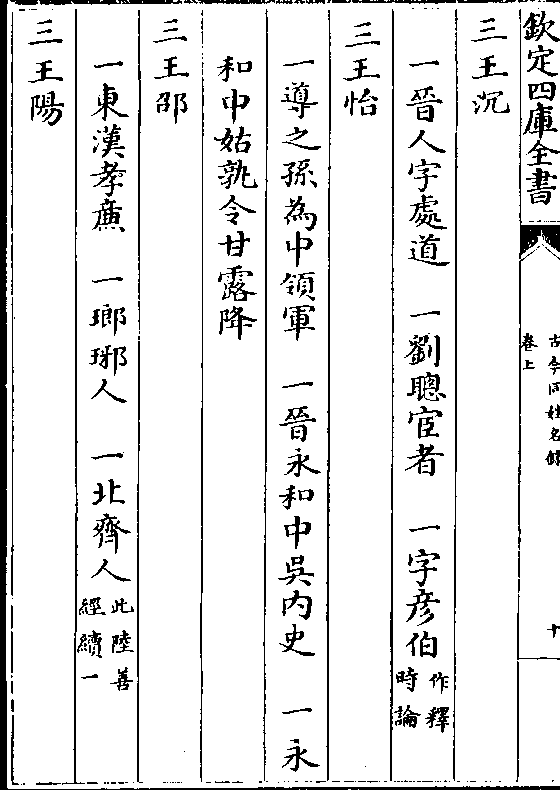 欽定四庫全書
古今同姓名錄
卷上
十
三王沉
一晉人字處道　一劉聰宦者　一字彥伯作釋時論
三王怡
一導之孫為中領軍　一晉永和中吳内史　一永
和中姑孰令甘露降
三王邵
一東漢孝廉　一瑯琊人　一北齊人此陸善經續一
三王陽